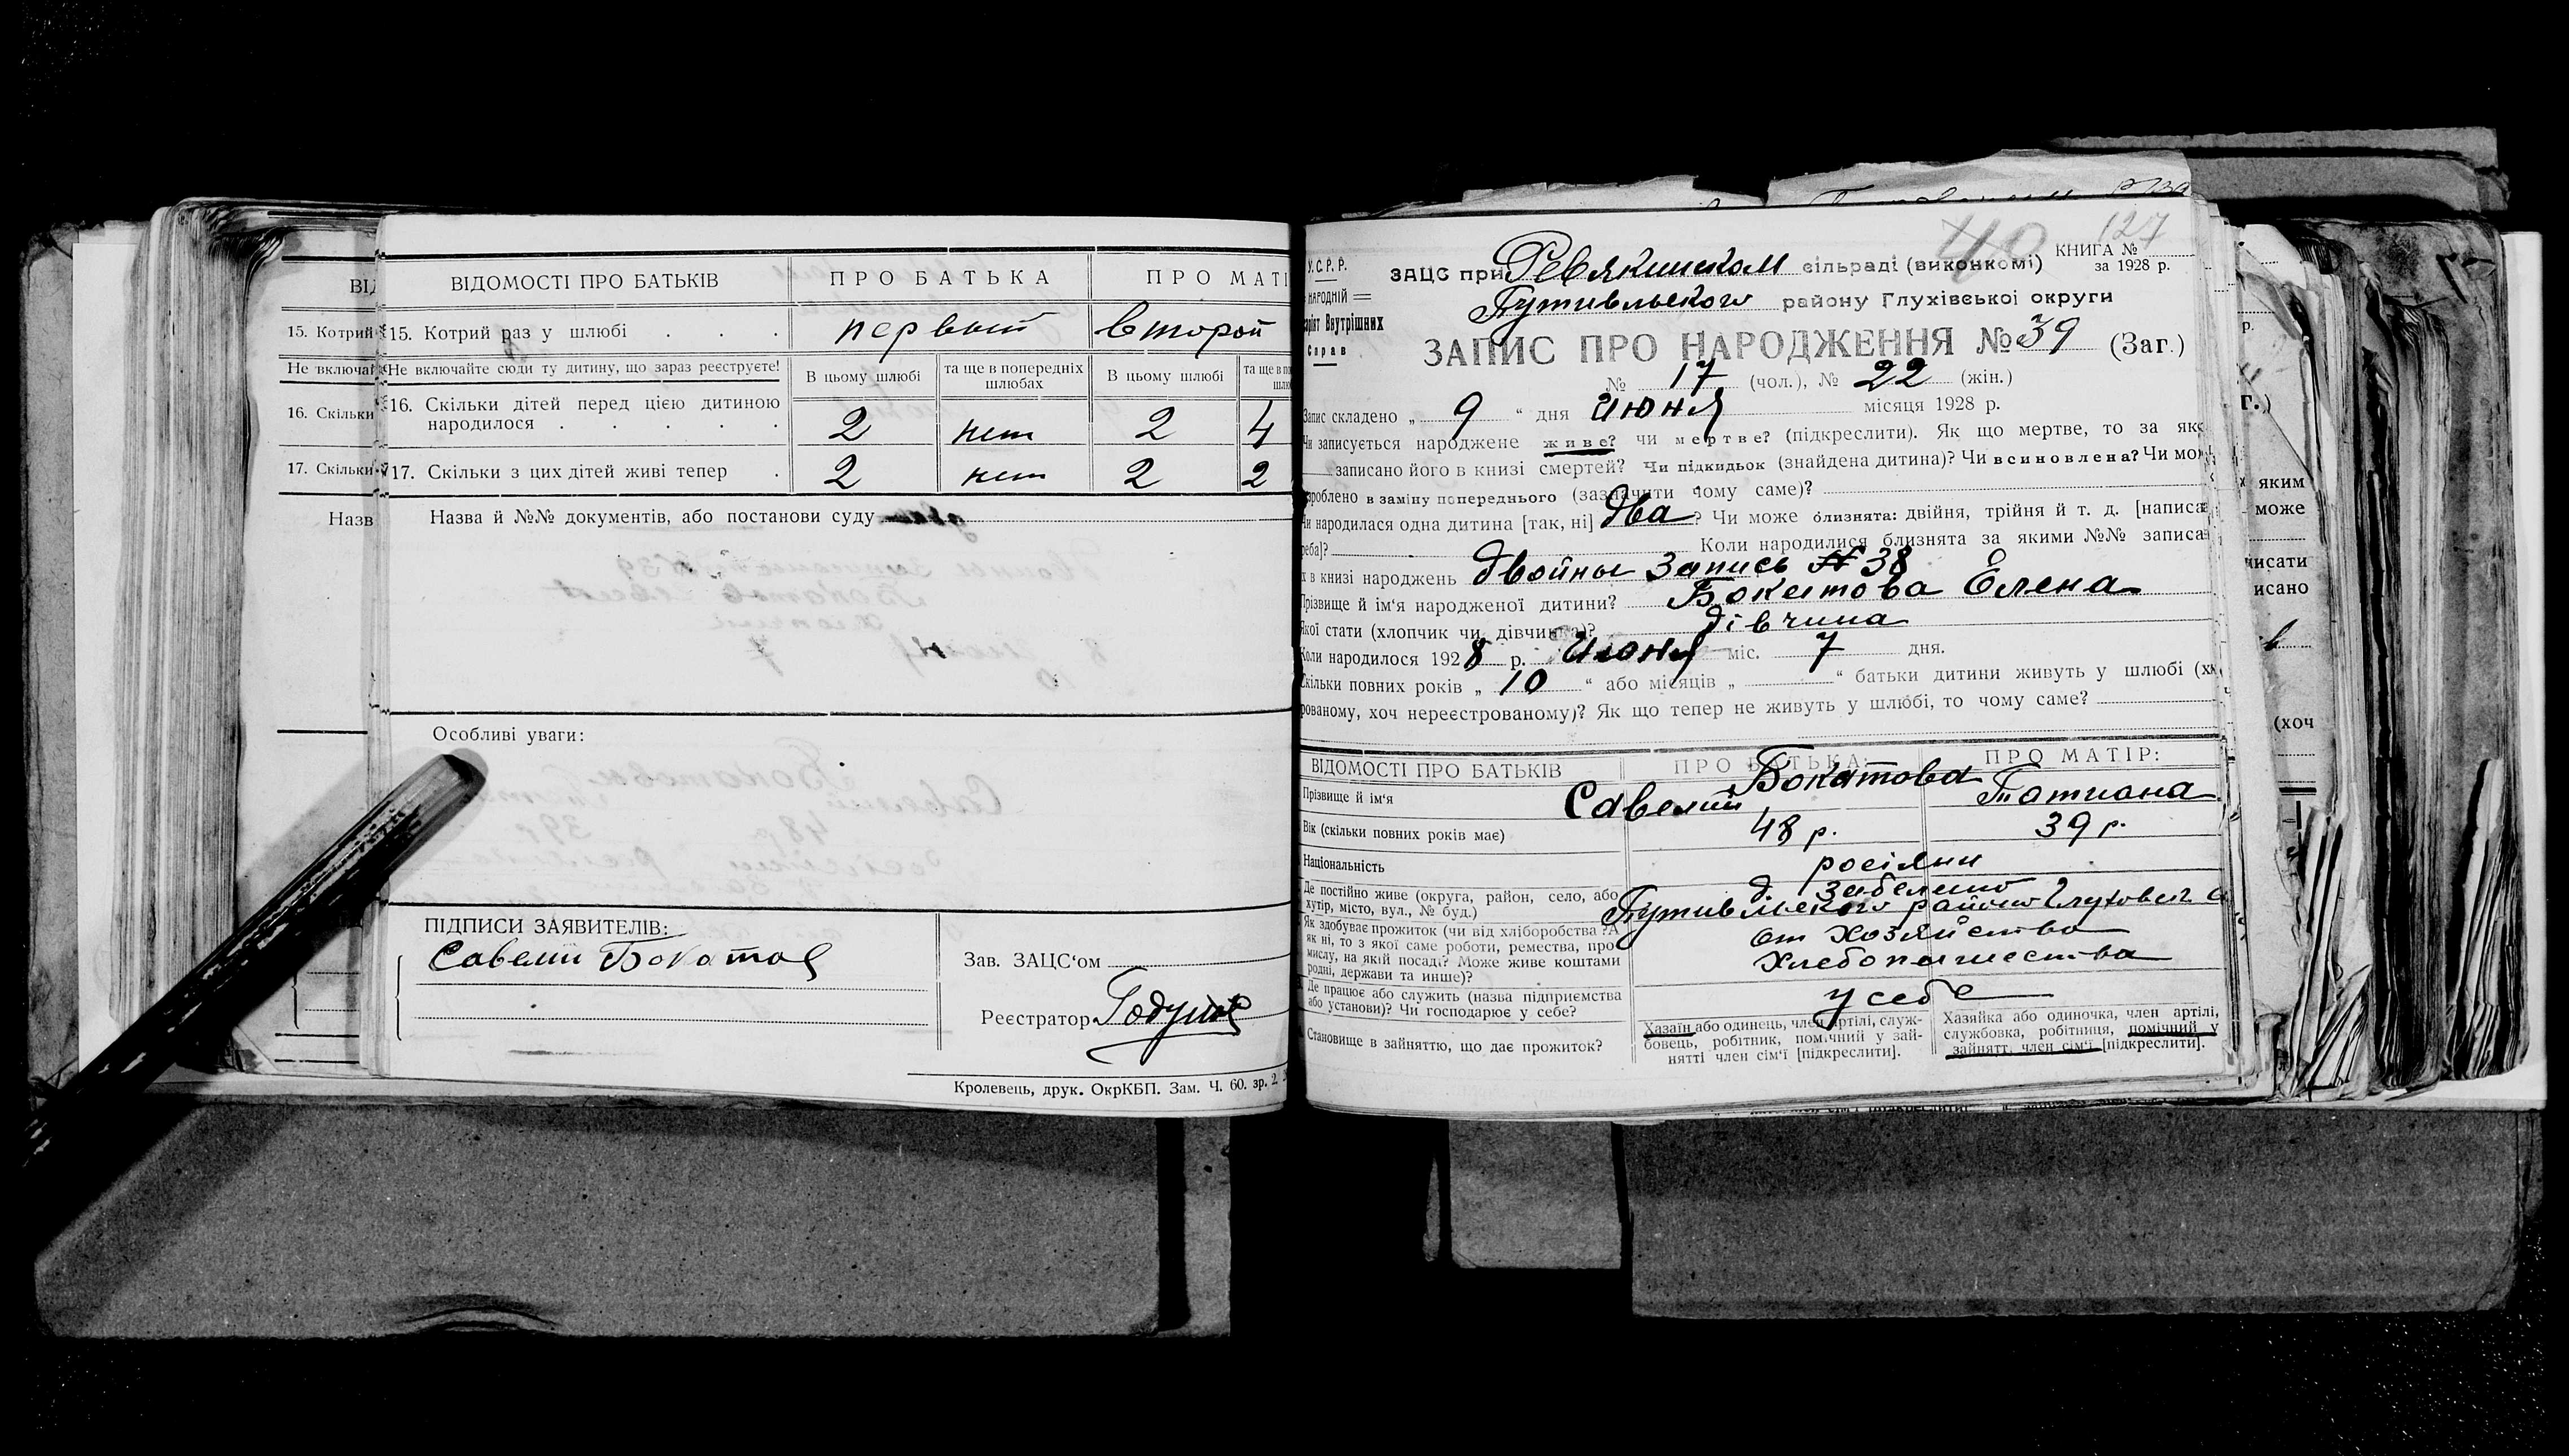 ВІДОМОСТІ ПРО БАТЬКІВ ПРО БАТЬКА ПРО МАТІ
15. Котрий раз у шлюбі . . . первый второй
Не включайте сюди ту дитину, що зараз реєструєте! В цьому шлюбі та ще в попередніх шлюбах В цьому шлюбі та ще в по
16. Скільки дітей перед цією дитиною
народилося . . . . . 2 нет 2 4
17. Скільки з цих дітей живі тепер . 2 нет 2 2
Назва й №№ документів, або постанови суду
Особливі уваги:
ПІДПИСИ ЗАЯВИТЕЛІВ:
Савелий Бокатов
Зав. ЗАЦС'ом
Реєстратор Годунов
Кролевець, друк. ОкрКБП. Зам. Ч. 60. зр. 2.
127
40
У.С.Р.Р. ЗАЦС при Ревякинском сільраді (виконкомі) КНИГА №
за 1928 р.
НАРОДНІЙ Путивльского району Глухівської округи
Внутрішних
Справ
ЗАПИС ПРО НАРОДЖЕННЯ № 39 (Заг.)
№ 17 (чол.), № 22 (жін.)
Запис складено „ 9 “ дня Июня місяця 1928 р.
Чи записується народжене живе? чи мертве? (підкреслити). Як що мертве, то за яко
записано його в книзі смертей? Чи підкидьок (знайдена дитина)? Чи всиновлена? Чи мо
зроблено в заміну попереднього (зазначити чому саме)?
Чи народилася одна дитина [так, ні] два? Чи може близнята: двійня, трійня й т. д. [написа
треба]? Коли народилися близнята за якими №№ записа
х в книзі народжень двойны Запись № 38
Прізвище й ім'я народженої дитини? Бокатова Елена
Якої стати (хлопчик чи дівчинка)? дівчина
Коли народилося 1928 р. Июня міс. 7 дня.
Скільки повних років „ 10 “ або місяців „ “ батьки дитини живуть у шлюбі (х
рованому, хоч нереєстрованому)? Як що тепер не живуть у шлюбі, то чому саме?
ВІДОМОСТІ ПРО БАТЬКІВ ПРО БАТЬКА: ПРО МАТІР:
Бокатова
Прізвище й ім'я Савелий Татиана
Вік (скільки повних років має) 48 р. 39 р.
Національність росіяни
Де постійно живе (округа, район, село, або
хутір, місто, вул., № буд.)
Путивльского району
Як здобуває прожиток (чи від хліборобства? А
як ні, то з якої саме роботи, ремества, про
мислу, на якій посаді? Може живе коштами
родні, держави та инше)?
от хозяйства
хлебопашества
Де працює або служить (назва підприємства
або установи)? Чи господарює у себе?
у себе
Становище в зайняттю, що дає прожиток?
Хазаїн або одинець, член артілі, служ-
бовець, робітник, помічний у зай-
нятті член сім'ї [підкреслити].
Хазяйка або одиночка, член артілі,
службовка, робітниця, помічний у
зайнятт. член сім'ї [підкреслити].